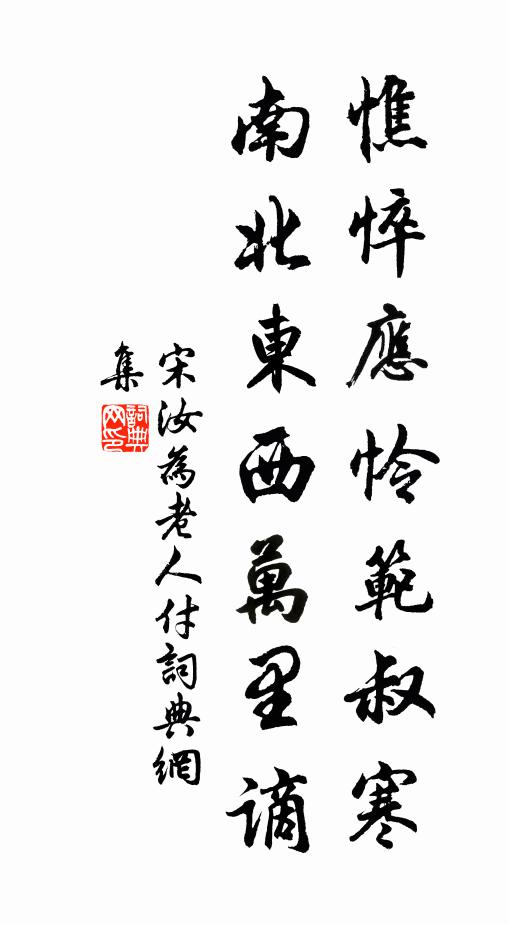 憔悴應怜範叔寒
南北東西萬里謫
宋汝為老人付詞典網
集
詞典
网印